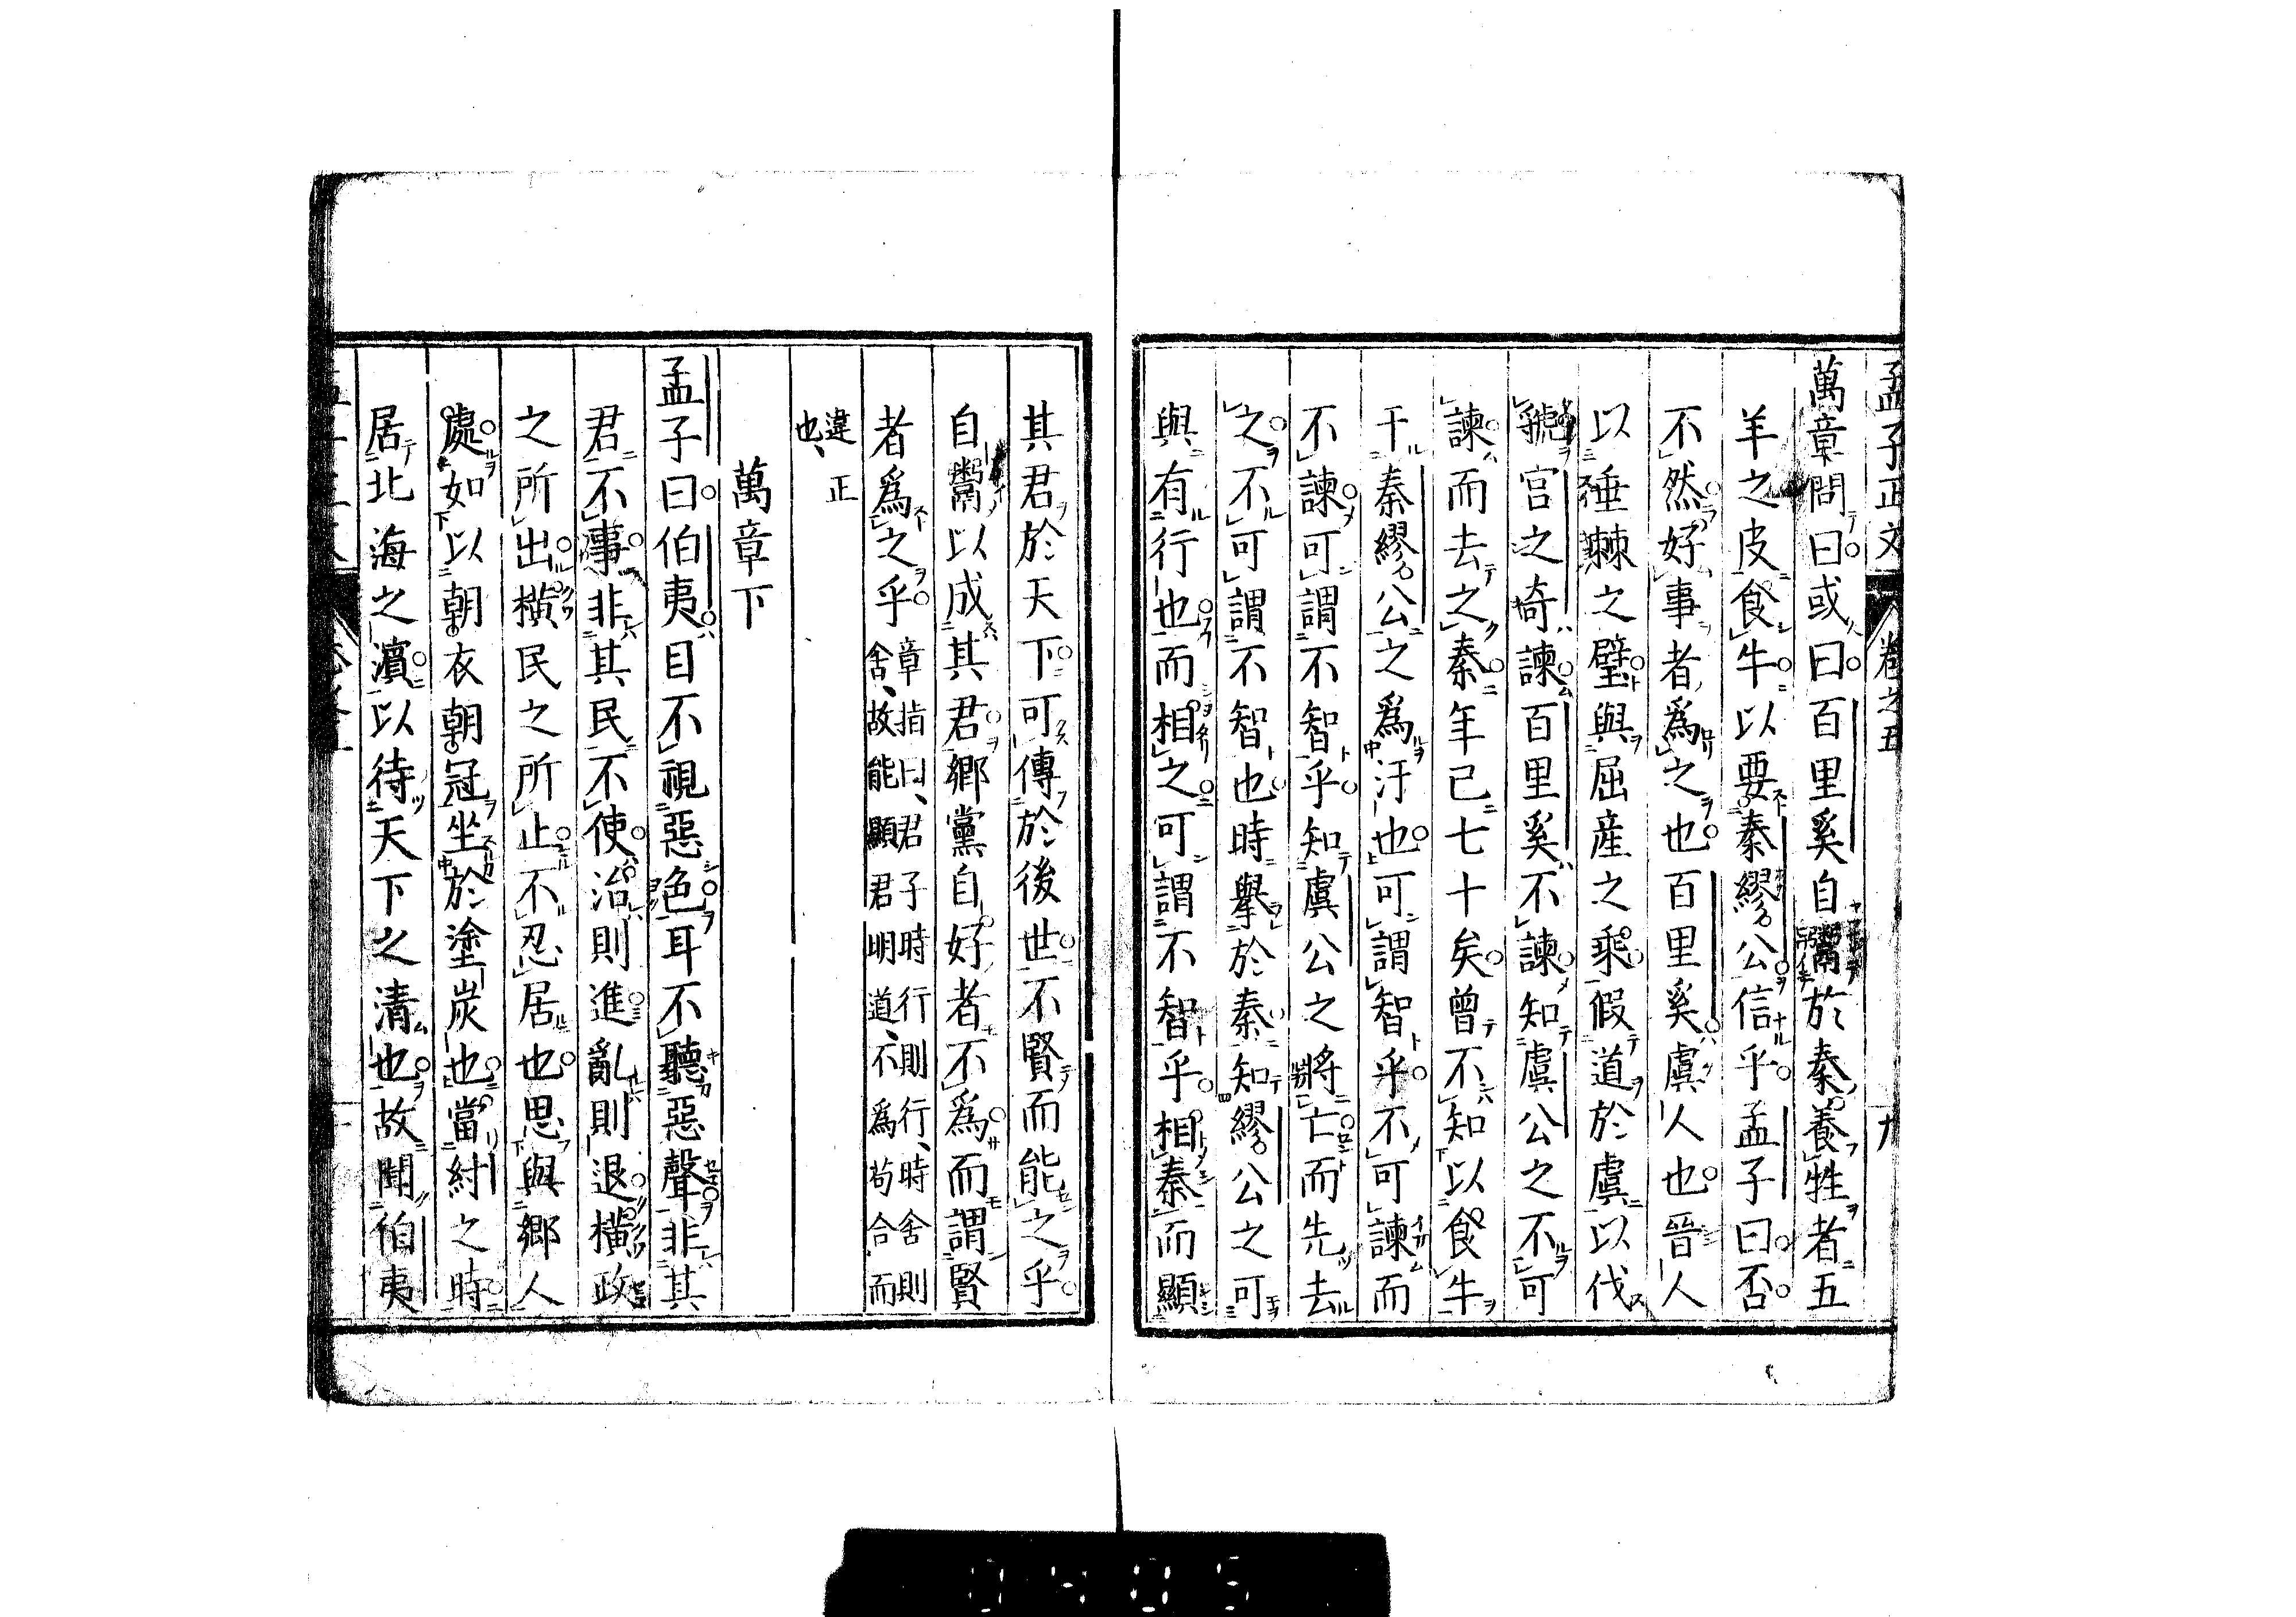 孟子正文 卷之五 九
萬章問曰或曰百里奚自鬻於秦養牲者五
羊之皮食牛以要秦繆公信乎孟子曰否
不然好事者爲之也百里奚虞人也晉人
以垂棘之璧與屈産之乘假道於虞以伐
虢宮之奇諫百里奚不諫知虞公之不可
諫而去之秦年已七十矣曾不知以食牛
干秦繆公之爲汙也可謂智乎不可諫而
不諫可謂不智乎知虞公之將亡而先去
之不可謂不智也時擧於秦知繆公之可
與有行也而相之可謂不智乎相秦而顯
其君於天下可傳於後世不賢而能之乎
自鬻以成其君鄉黨自好者不爲而謂賢
者爲之乎
章指曰、君子時行則行、時舍則
舍、故能顯君明道、不爲苟合而
違正
也、
萬章下
孟子曰伯夷目不視惡色耳不聽惡聲非其
君不事非其民不使治則進亂則退橫政
之所出橫民之所止不忍居也思與鄉人
處如以朝衣朝冠坐於塗炭也當紂之時
居北海之濱以待天下之清也故聞伯夷